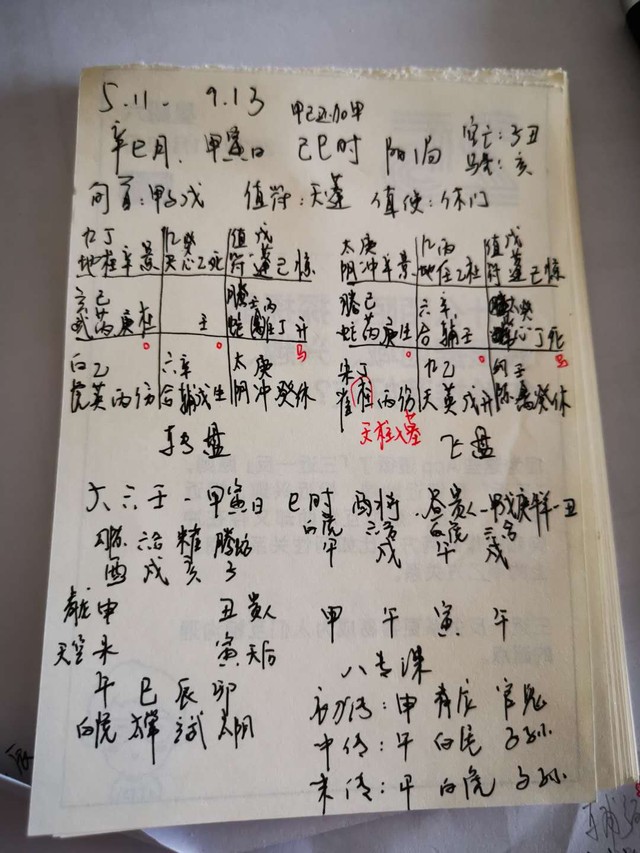 5.11 - 9.13 甲己还加甲
辛巳月、甲寅日 己巳时 阳局 空亡:子丑
马星:亥
旬首:甲子戊 值符:天蓬 值使:休门
九丁 九癸 值戊
地柱辛景 天心乙死 符蓬己惊
玄己 螣壬丙
武芮庚杜 壬 蛇 丁开
马
白乙 六辛 太庚
虎英丙伤 合辅戊生 阴冲癸休
转盘
太庚 九丙 值戊
阴冲辛景 地任乙杜 符蓬己惊
螣己 六辛 太癸
蛇芮庚生 合辅壬 心丁死
马
朱丁 九乙 勾壬
雀柱丙伤 天英戊开 陈禽癸休
天柱入墓
飞盘
大六壬-甲寅日 巳时 酉将 昼贵人-甲戊庚羊-丑
勾陈 六合 朱雀 螣蛇 白虎 六合 白虎 六合
酉 戌 亥 子 午 戌 午 戌
青龙申 丑贵人 甲 午 寅 午
天空未 寅天后 八专课
午 巳 辰 卯 初传:申 青龙 官鬼
白虎 太常 玄武 太阴 中传:午 白虎 子孙
末传:午 白虎 子孙